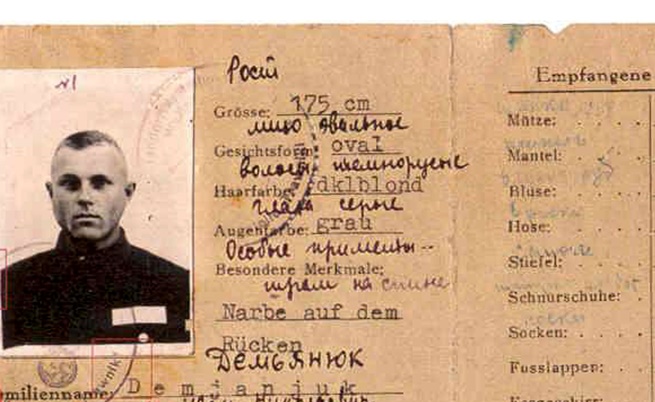 №1
Рост
Grösse: 175 cm
лицо овальное
Gesichtsform: oval
волосы темнорусые
Haarfarbe: dklblond
глаза серые
Augenfarbe: grau
Особые приметы--
Besondere Merkmale:
шрам на спине
Narbe auf dem
Rücken
Демьянюк
milienname: Demjanjuk
Empfangene
Mütze:
Mantel:
Bluse:
Hose:
Stiefel:
Schnürschuhe:
Socken:
Fusslappen: